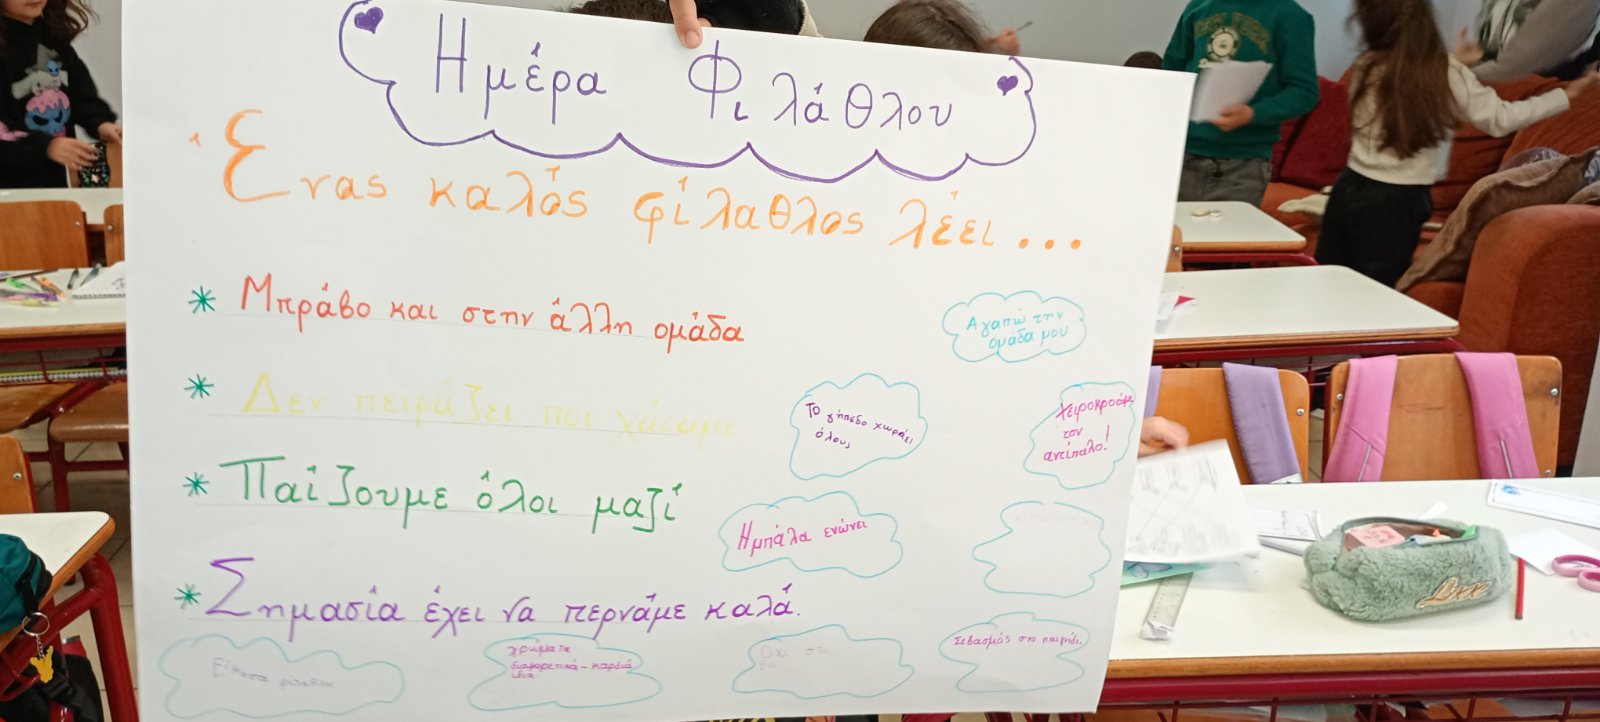 Ημέρα Φιλάθλου
Ένας καλός φίλαθλος λέει...
* Μπράβο και στην άλλη ομάδα
* Δεν πειράζει που χάσαμε
* Παίζουμε όλοι μαζί
* Σημασία έχει να περνάμε καλά.
Αγαπώ την
ομάδα μου
Το γήπεδο χωράει
όλους
Χειροκροτάμε
τον
αντίπαλο!
Η μπάλα ενώνει
Είμαστε φίλαθλοι
χρώματα
διαφορετικά - καρδιά
ίδια
Όχι στη
Σεβασμός στο παιχνίδι.